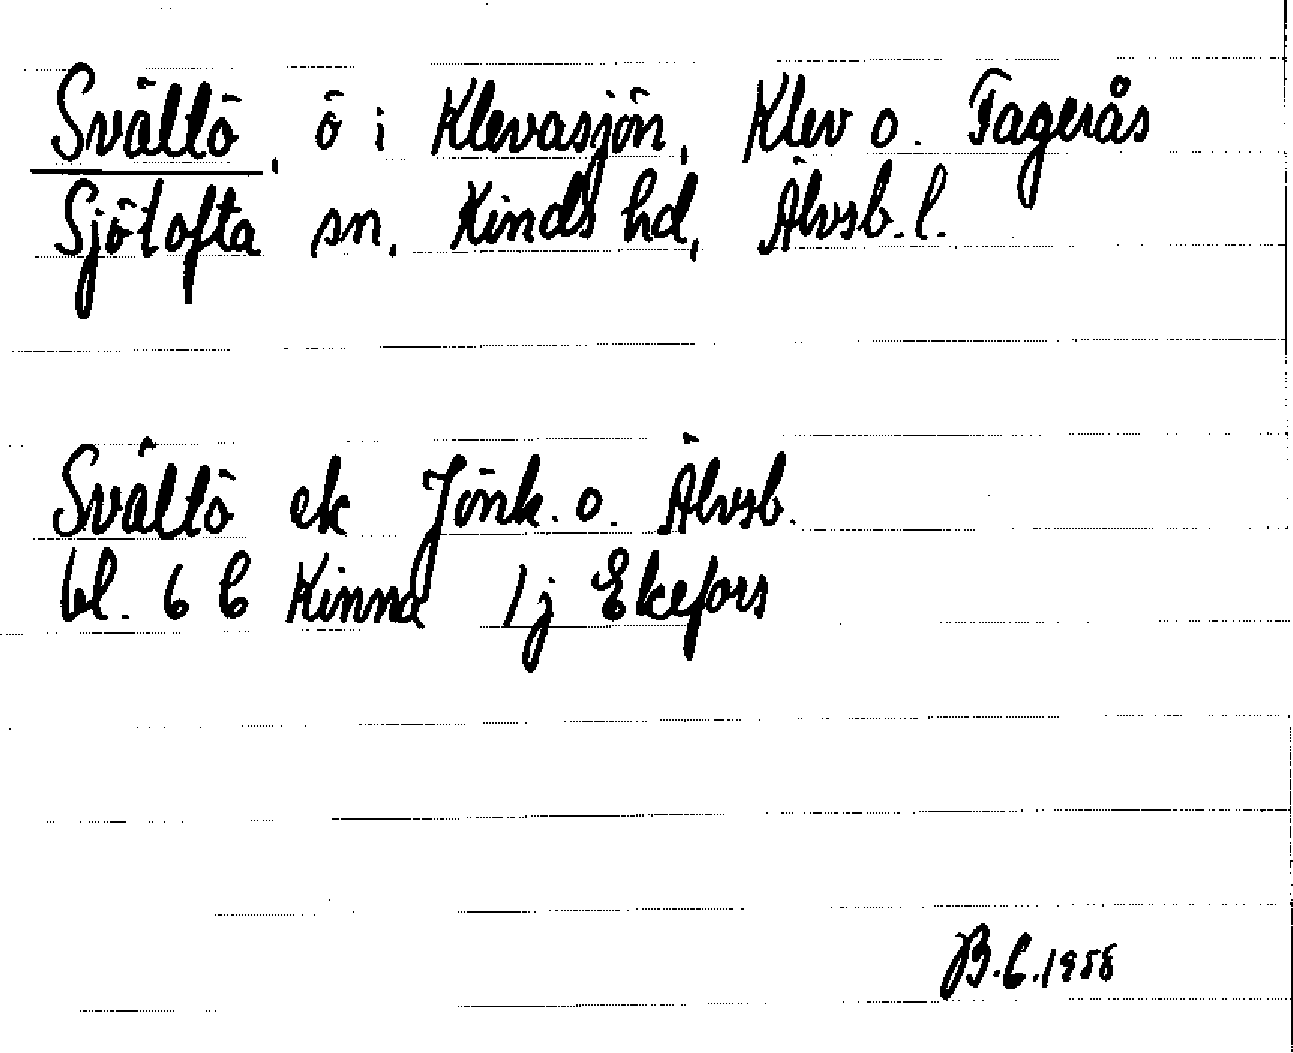 Svältö, ö i Klevasjön, Klev o. Fagerås
Sjötofta sn. Kinds hd, Älvsb. l.
Svältö ek Jönk. o. Älvsb.
bl. 6 C Kinna 1j Ekefors
B.C. 1958